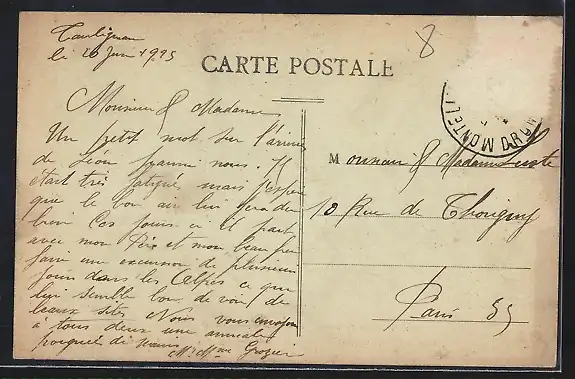 Taulignan
le 26 Juin 1925
8
CARTE POSTALE
Monsieur & Madame
Un petit mot sur l'arrivée
de Leon
était très fatigué, mais j'espère
que le bon air lui fera du
bien Ces jours ci il part
avec mon Père et mon beau père
faire une excursion de plusieurs
jours dans les Alpes ce que
lui semble bon, de voir de
beaux sites Nous vous envoyons
à tous deux une amicale
poignée de mains
Mr Mme Grozier
MONTELI
Monsieur & Madame
10 Rue de Thorigny
Paris